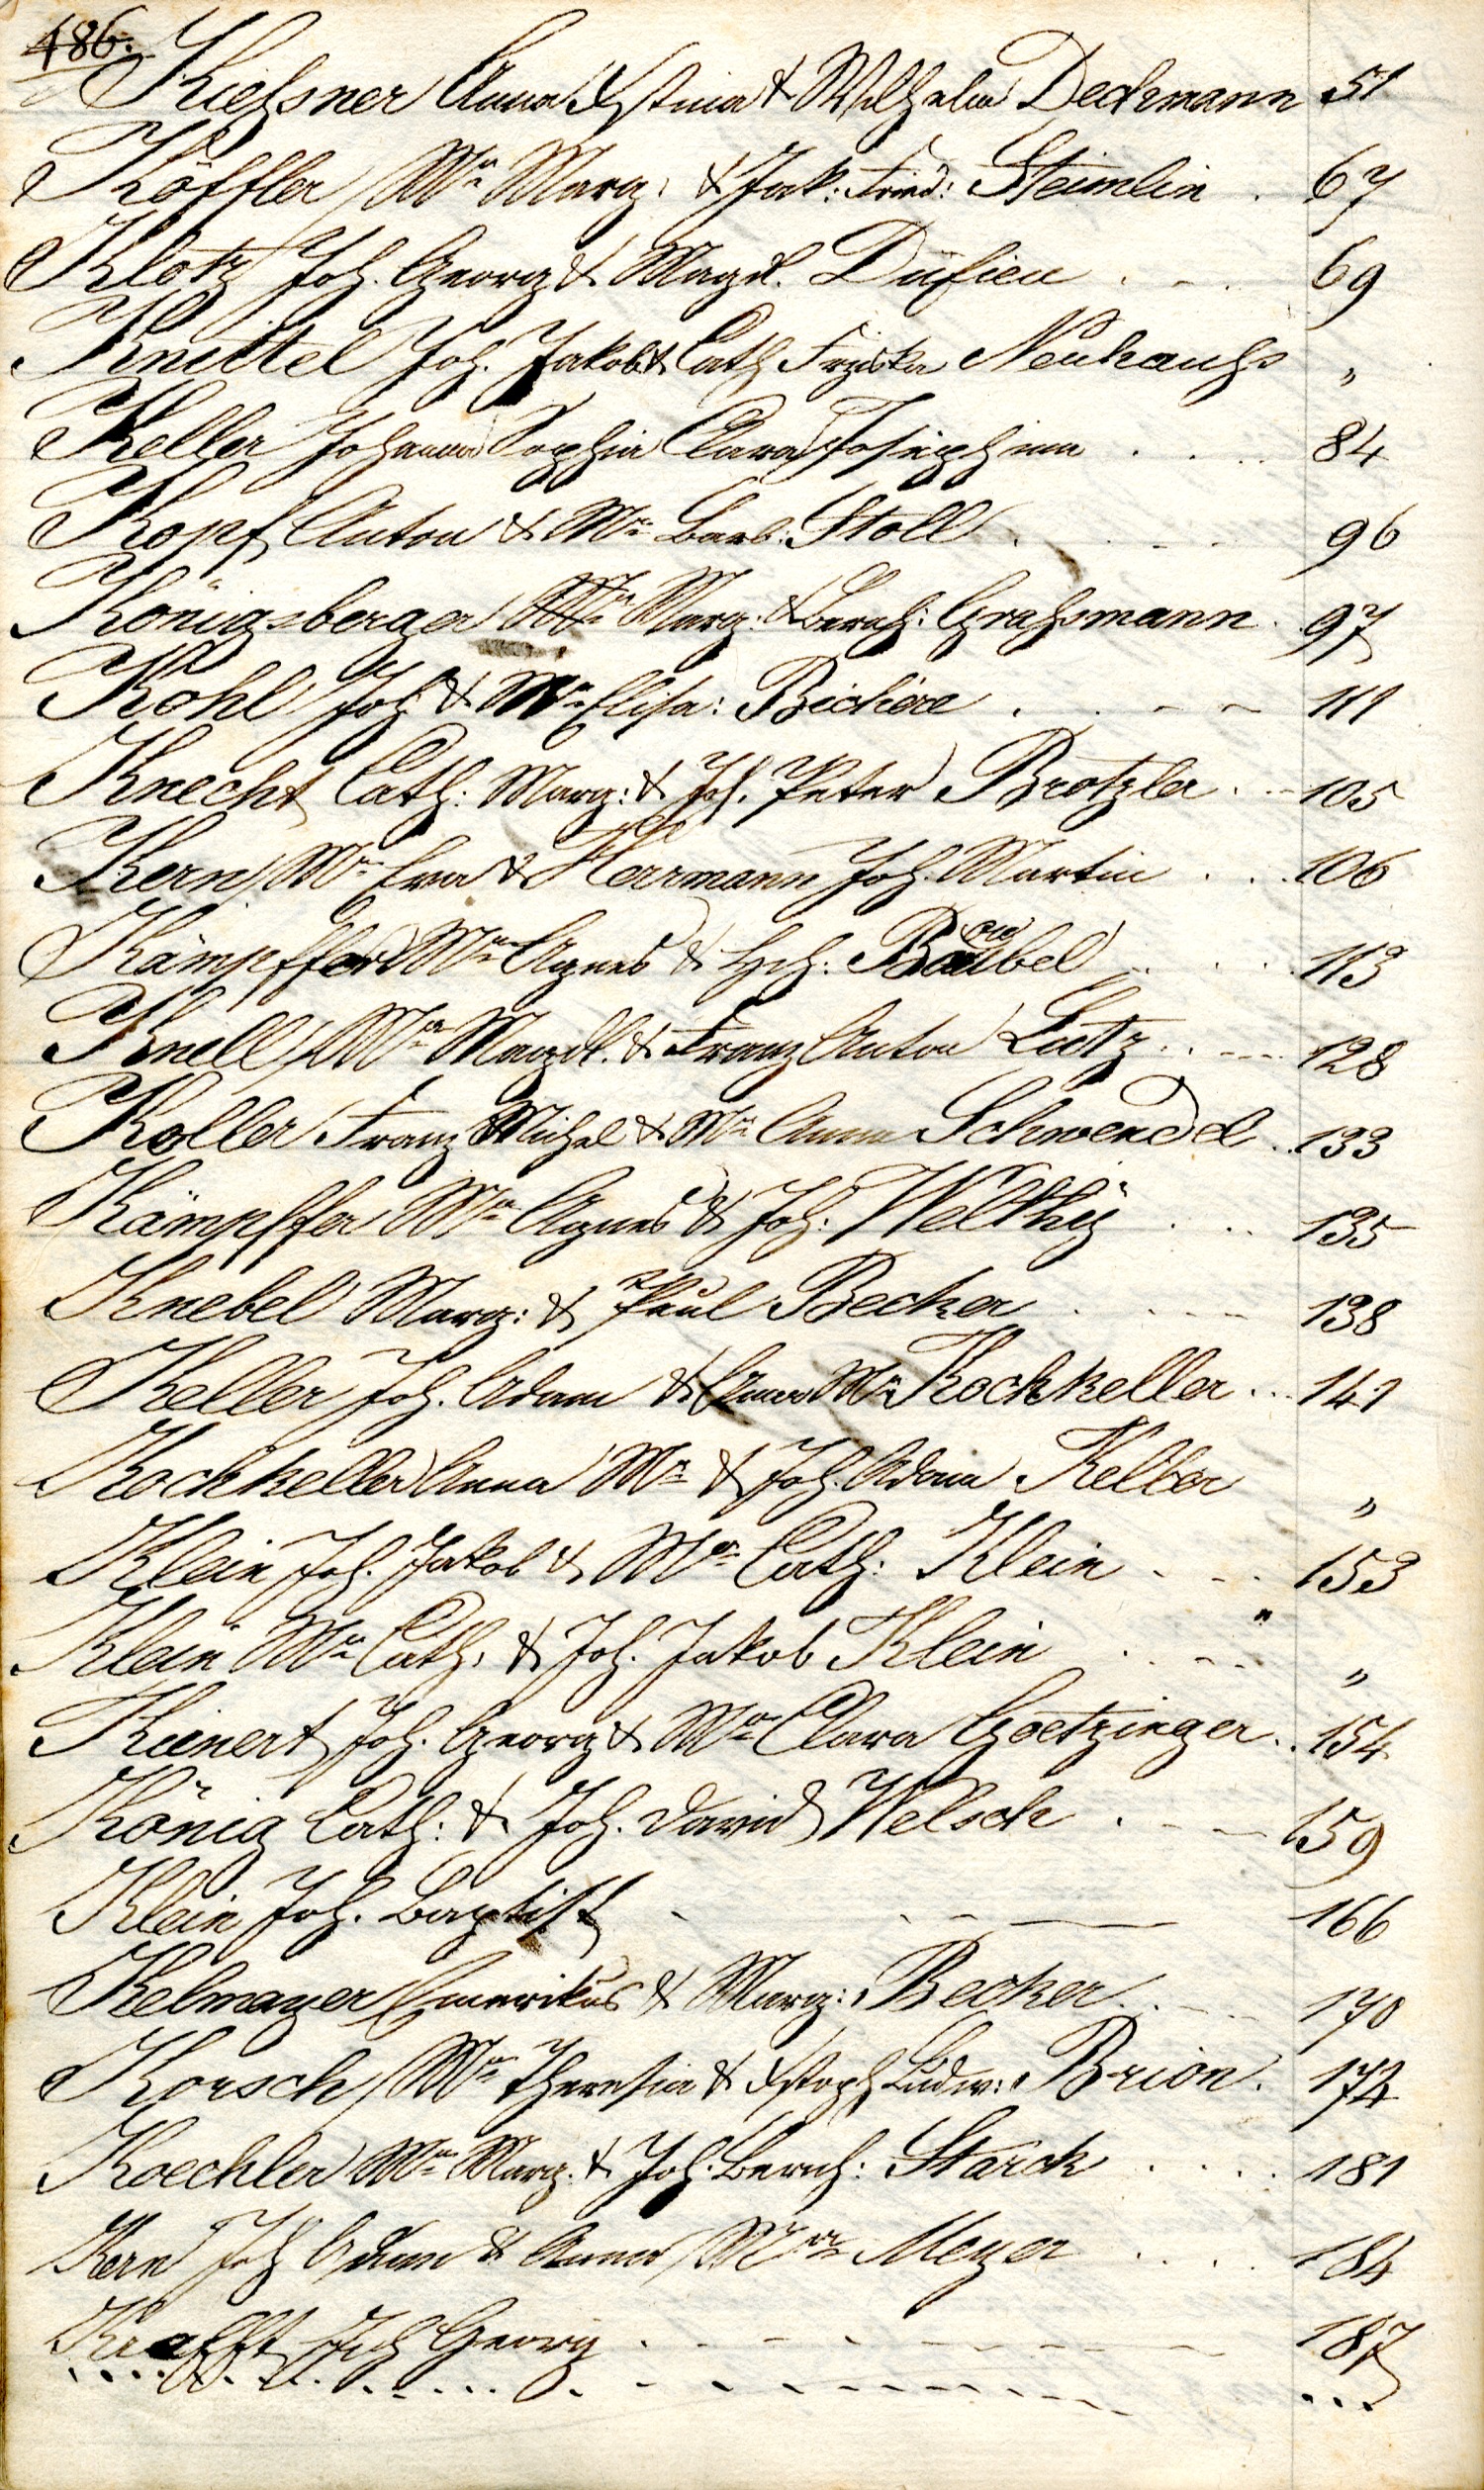 486.
Kiehsner Anna Xstina & Wilhelm Deckmann 51
Köffler Ma Marg. & Jak: Fried: Steimlin . 67
Klotz Joh. Georg & Magd. Düfieu . - . 69
Knittel Joh. Jakob & Cath Frziska Neuhauhs "
Keller Johanna Sophia Clara Josephina . . . . 84
Kopf Anton & Ma Barb: Stoll . . - - 96
Königsberger Marg: & Bernh: Grahsmann . 97
Kohl Joh & Ma Elisa: Bichére . . - - 111
Knecht Cath: Marg: & Joh. Peter Brotzler . - 105
Kern Ma Eva & Herrmann Joh. Martin . . . 106
Kämpffer Ma Agnes & Hch: Baubel . . . 113
Knell Ma Magdl. & Franz Anton Lutz . . --- 128
Koller Franz Michel & Ma Anna Schwendel . . 133
Kämpffer Ma Agnes & Joh. Welthÿ . . . 135
Knebel Marg: & Paul Becker . . - - 138
Keller Joh. Adam & Anna Ma Kochkeller . . . 141
Kochkeller Anna Ma & Joh. Adam Keller "
Klein Joh. Jakob & Ma Cath: Klein . - . 153
Klein Ma Cath. & Joh. Jakob Klein . . - - " "
Kienert Joh. Georg & Ma Clara Goetzinger . . 154
König Cath: & Joh. David Welsch . - - 159
Klein Joh. Baptist - . - - — 166
Kelmayer Emerikus & Marg: Becker . . - - 170
Korsch Ma Theresia & Xstoph Ludw: Brion . 174
Koechler Ma Marg. & Joh. Bernh: Starck . . . . 181
Kern Joh Adam & Anna Ma Meyer . . . 184
Krafft Joh Georg . - - - . - - - - 187